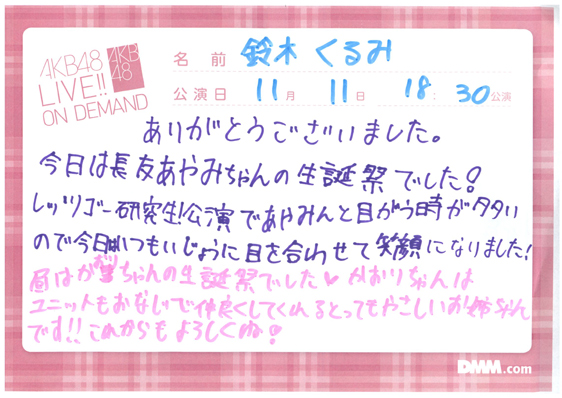 AKB48
LIVE!!
ON DEMAND
AKB
48
名 前 鈴木 くるみ
公演日 11月 11日 18:30公演
ありがとうございました。
今日は長友あやみちゃんの生誕祭でした!
レッツゴー研究生!公演であやみんと目があう時が多い
ので今日はいつもいじょうに目を合わせて笑顔になりました!
昼はちゃんの生誕祭でした♥ かおりちゃんは
ユニットもおなじで仲良くしてくれるとってもやさしいお姉ちゃん
です!!これからもよろしくね!
DMM.com